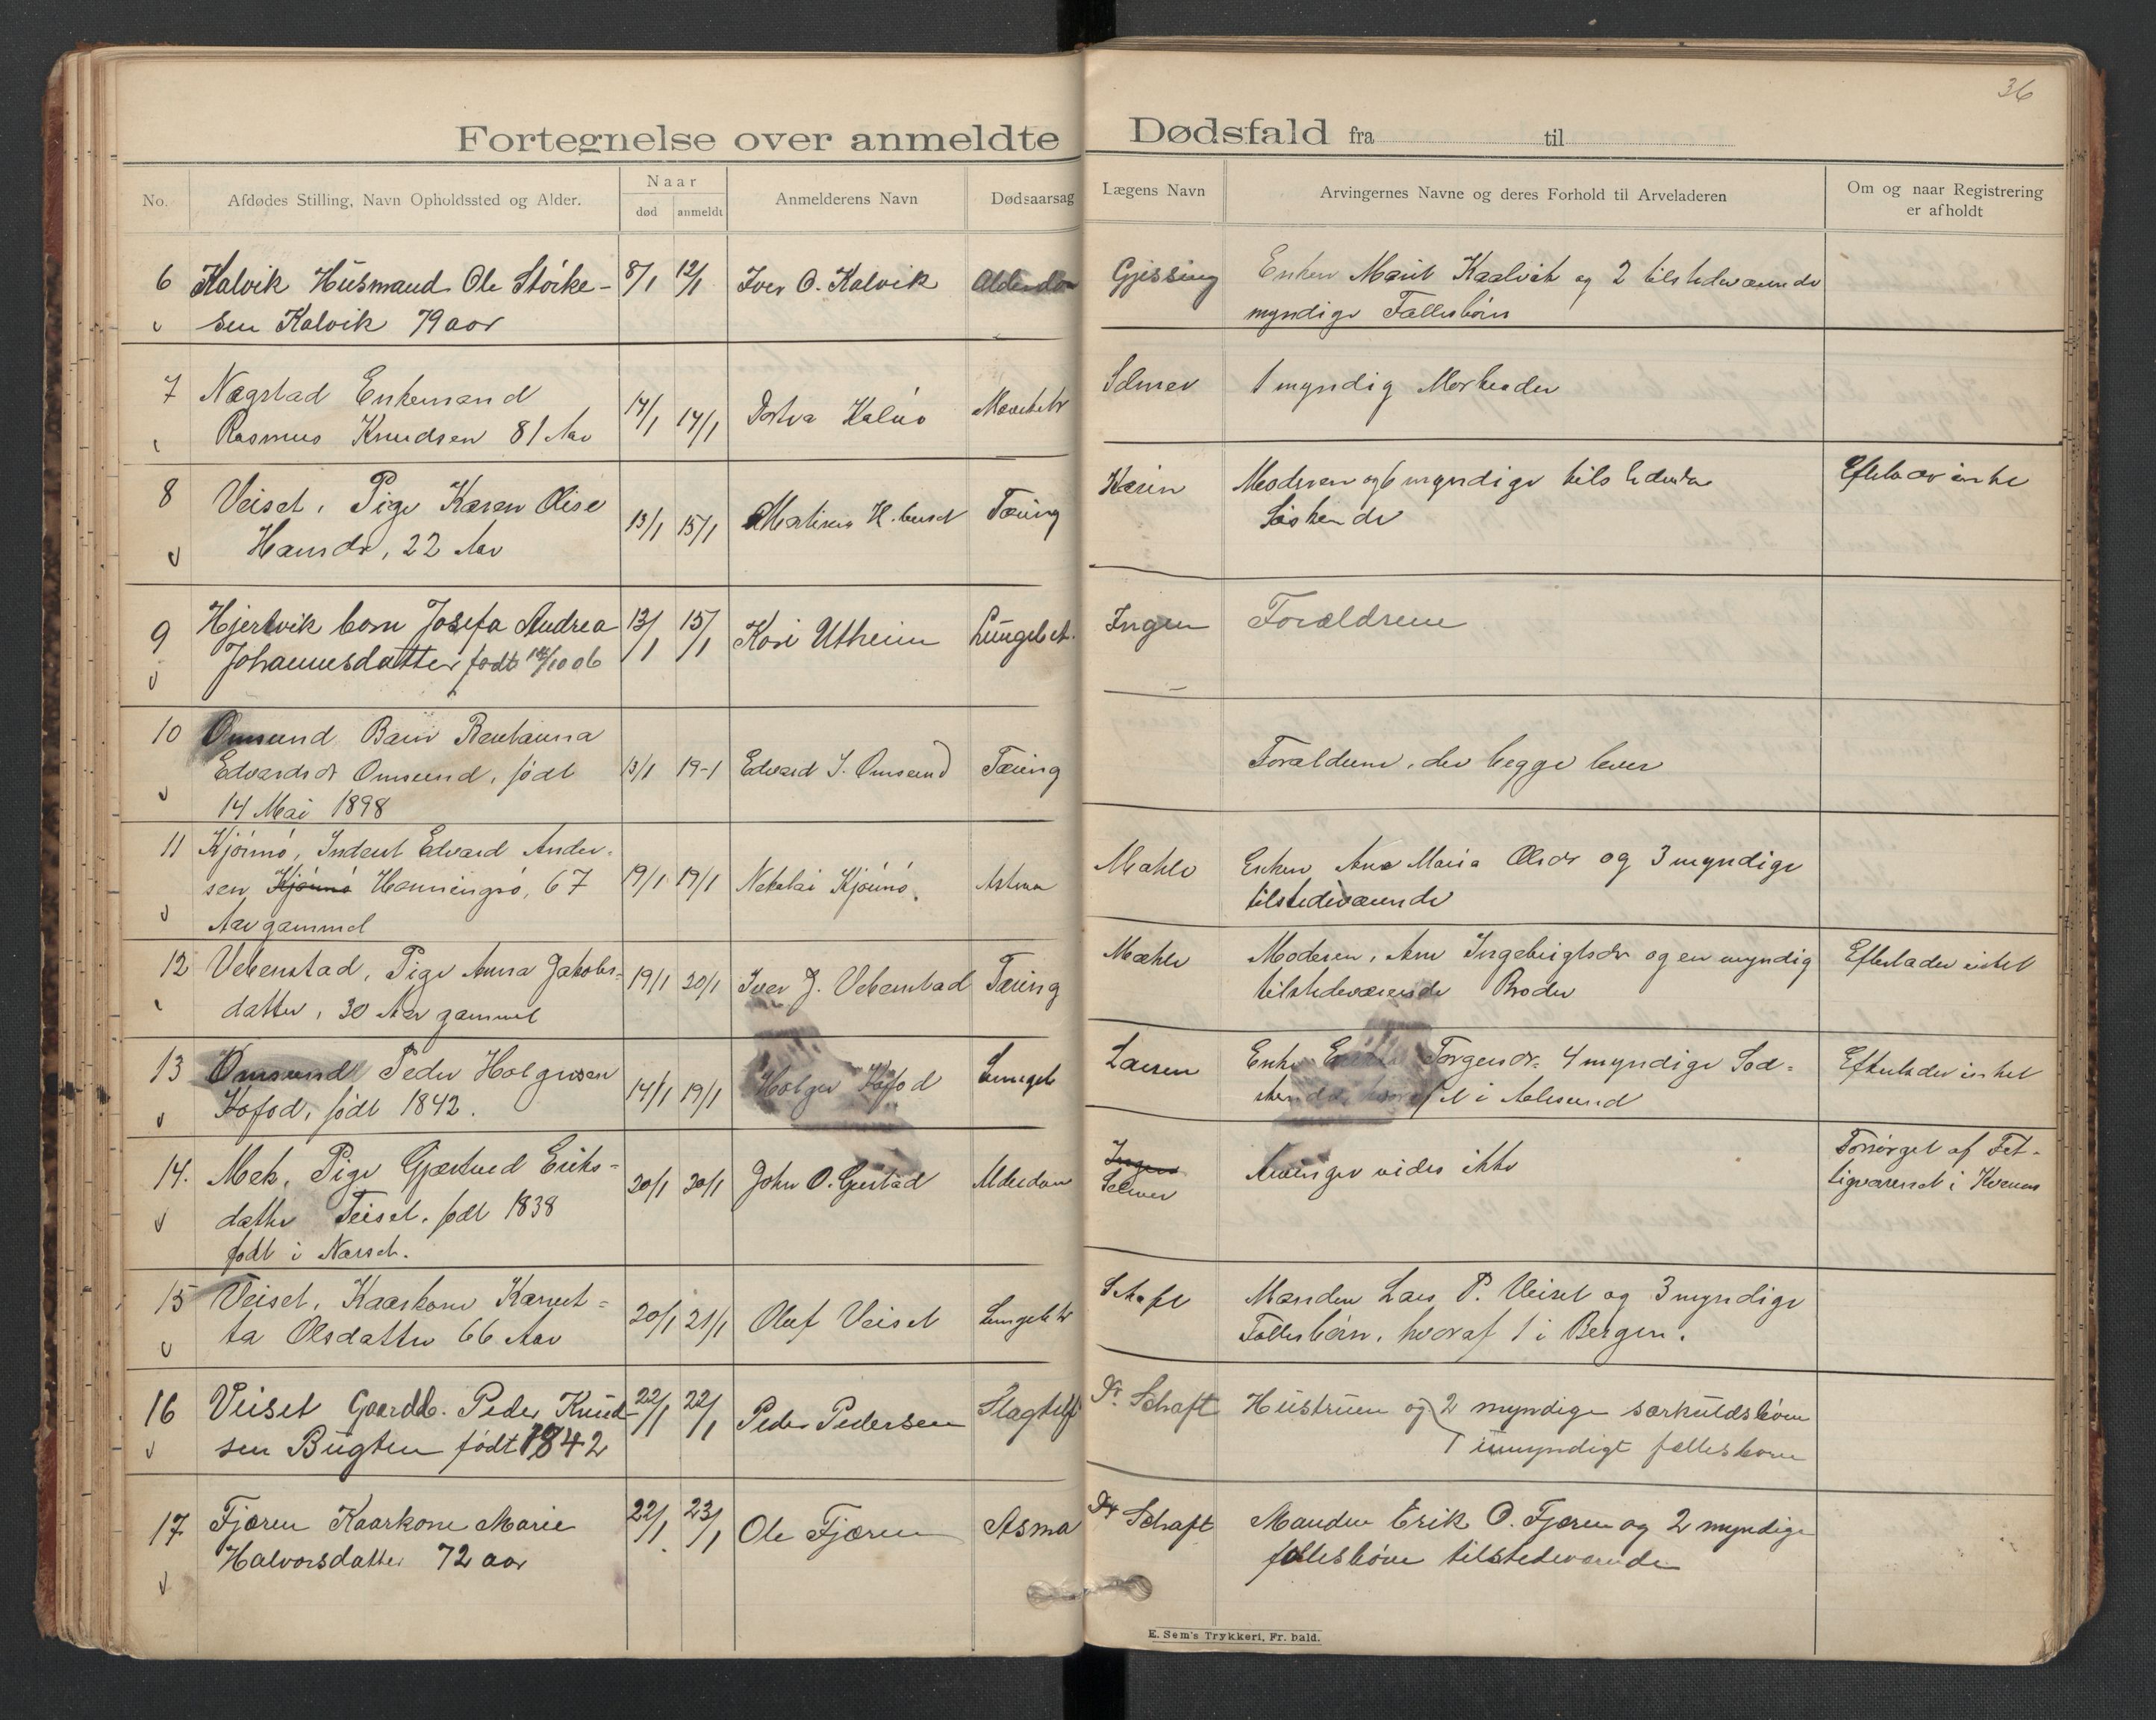 36
Fortegnelse over anmeldte Dødsfald fra til
No.
Afdødes Stilling, Navn Opholdssted og Alder.
Naar
død anmeldt
Anmelderens Navn
Dødsaarsag
Lægens Navn
Arvingernes Navne og deres Forhold til Arveladeren
Om og naar Registrering
er afholdt
6 Kalvik Husmand Ole Störke-
sen Kalvik 79 aar
8/1 12/1 Iver O. Kalvik
Gjessing
Enken Marit Kaalvik og 2 tilstedeværende
myndige Fællesbörn
7 Nægstad Enkemand
Rasmus Knudsen 81 Aar
14/1 14/1
1 myndig
8 Veiset, Pige Karen Olise
Hansdr, 22 Aar
13/1 15/1 Tæring
Moderen og 6 myndige
Söskende
9 Hjertvik barn Josefa Andrea
Johannesdatter født 14/10 06
13/1 15/1 Kari Utheim Lungebet.
Ingen
Forældrene
10 Omsund Barn
Edvardsdr Omsund, födt
14 Mai 1898
13/1 19-1 Edvard I. Omsund Tæring
Forældrene, der begge lever
11 Kjönnö, Inderst Edvard Ander-
sen Kjönnö Henningsö, 67
Aar gammel
19/1 19/1 Nekolai Kjönnö. Astma
Mahle
Enken Ane Maria Olsdr og 3 myndige
tilstedeværende
12 Vebenstad, Pige Anna Jakobs-
datter, 30 Aar gammel
19/1 20/1 Iver J. Vebenstad Tæring
Mæhle
Moderen, Ane Ingebrigtsdr og en myndig
tilstedeværende Broder
Efterlader intet
13 Omsund Peder Holgersen
Kofod, födt 1842.
14/1 19/1 Holger Kofod
Larsen
Enke Torgersdr. 4 myndige Söd-
skende, hvoraf 1 i Aalesund
Efterlader intet
14. Mek, Pige Gjertrud Eriks-
datter Teiset, födt 1838
födt i Næsset.
20/1 20/1 John O. Gustad Alderdom
Ingen
Arvinger vides ikke
Forsörget af Fat-
tigvæsenet i Kvernes
15 Veiset, Kaarkone
Olsdatter 66 Aar
20/1 21/1 Oluf Veiset
Schaft
Manden Lars P. Veiset og 3 myndige
Fællesbörn, hvoraf 1 i Bergen.
16 Veiset Gaardb. Peder Knud-
sen Bugten født 1842
22/1 22/1 Peder Pedersen
Dr. Schaft
Hustruen og 2 myndige særkuldsbörn
1 umyndigt fællesbarn
17 Fjøren Kaarkone Marie
Halvorsdatter 72 aar
22/1 23/1 Ole Fjøren Asma
Dr Schaft
Manden Erik O. Fjøren og 2 myndige
fællesbörn tilstedeværende
E. Sem's Trykkeri, Fr. hald.